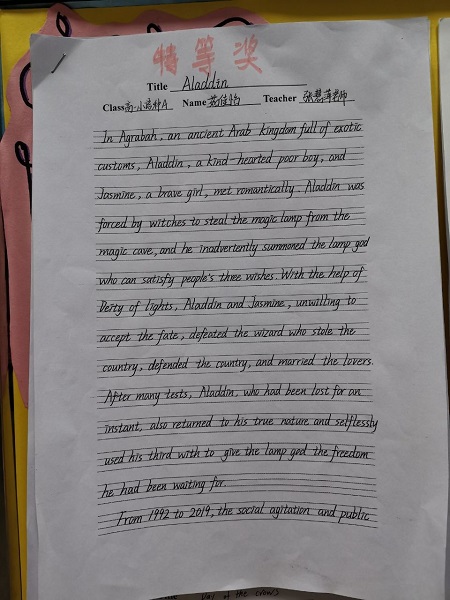 特等奖
Title Aladdin
Class Name Teacher
In Agrabah, an ancient Arab kingdom full of exotic
customs, Aladdin, a kind-hearted poor boy, and
Jasmine, a brave girl, met romantically. Aladdin was
forced by witches to steal the magic lamp from the
magic cave, and he inadvertently summoned the lamp god
who can satisfy people's three wishes. With the help of
Deity of lights, Aladdin and Jasmine, unwilling to
accept the fate, defeated the wizard who stole the
country, defended the country, and married the lovers.
After many tests, Aladdin, who had been lost for an
instant, also returned to his true nature and selflessly
used his third with to give the lamp god the freedom
he had been waiting for.
From 1992 to 2019, the social agitation and public